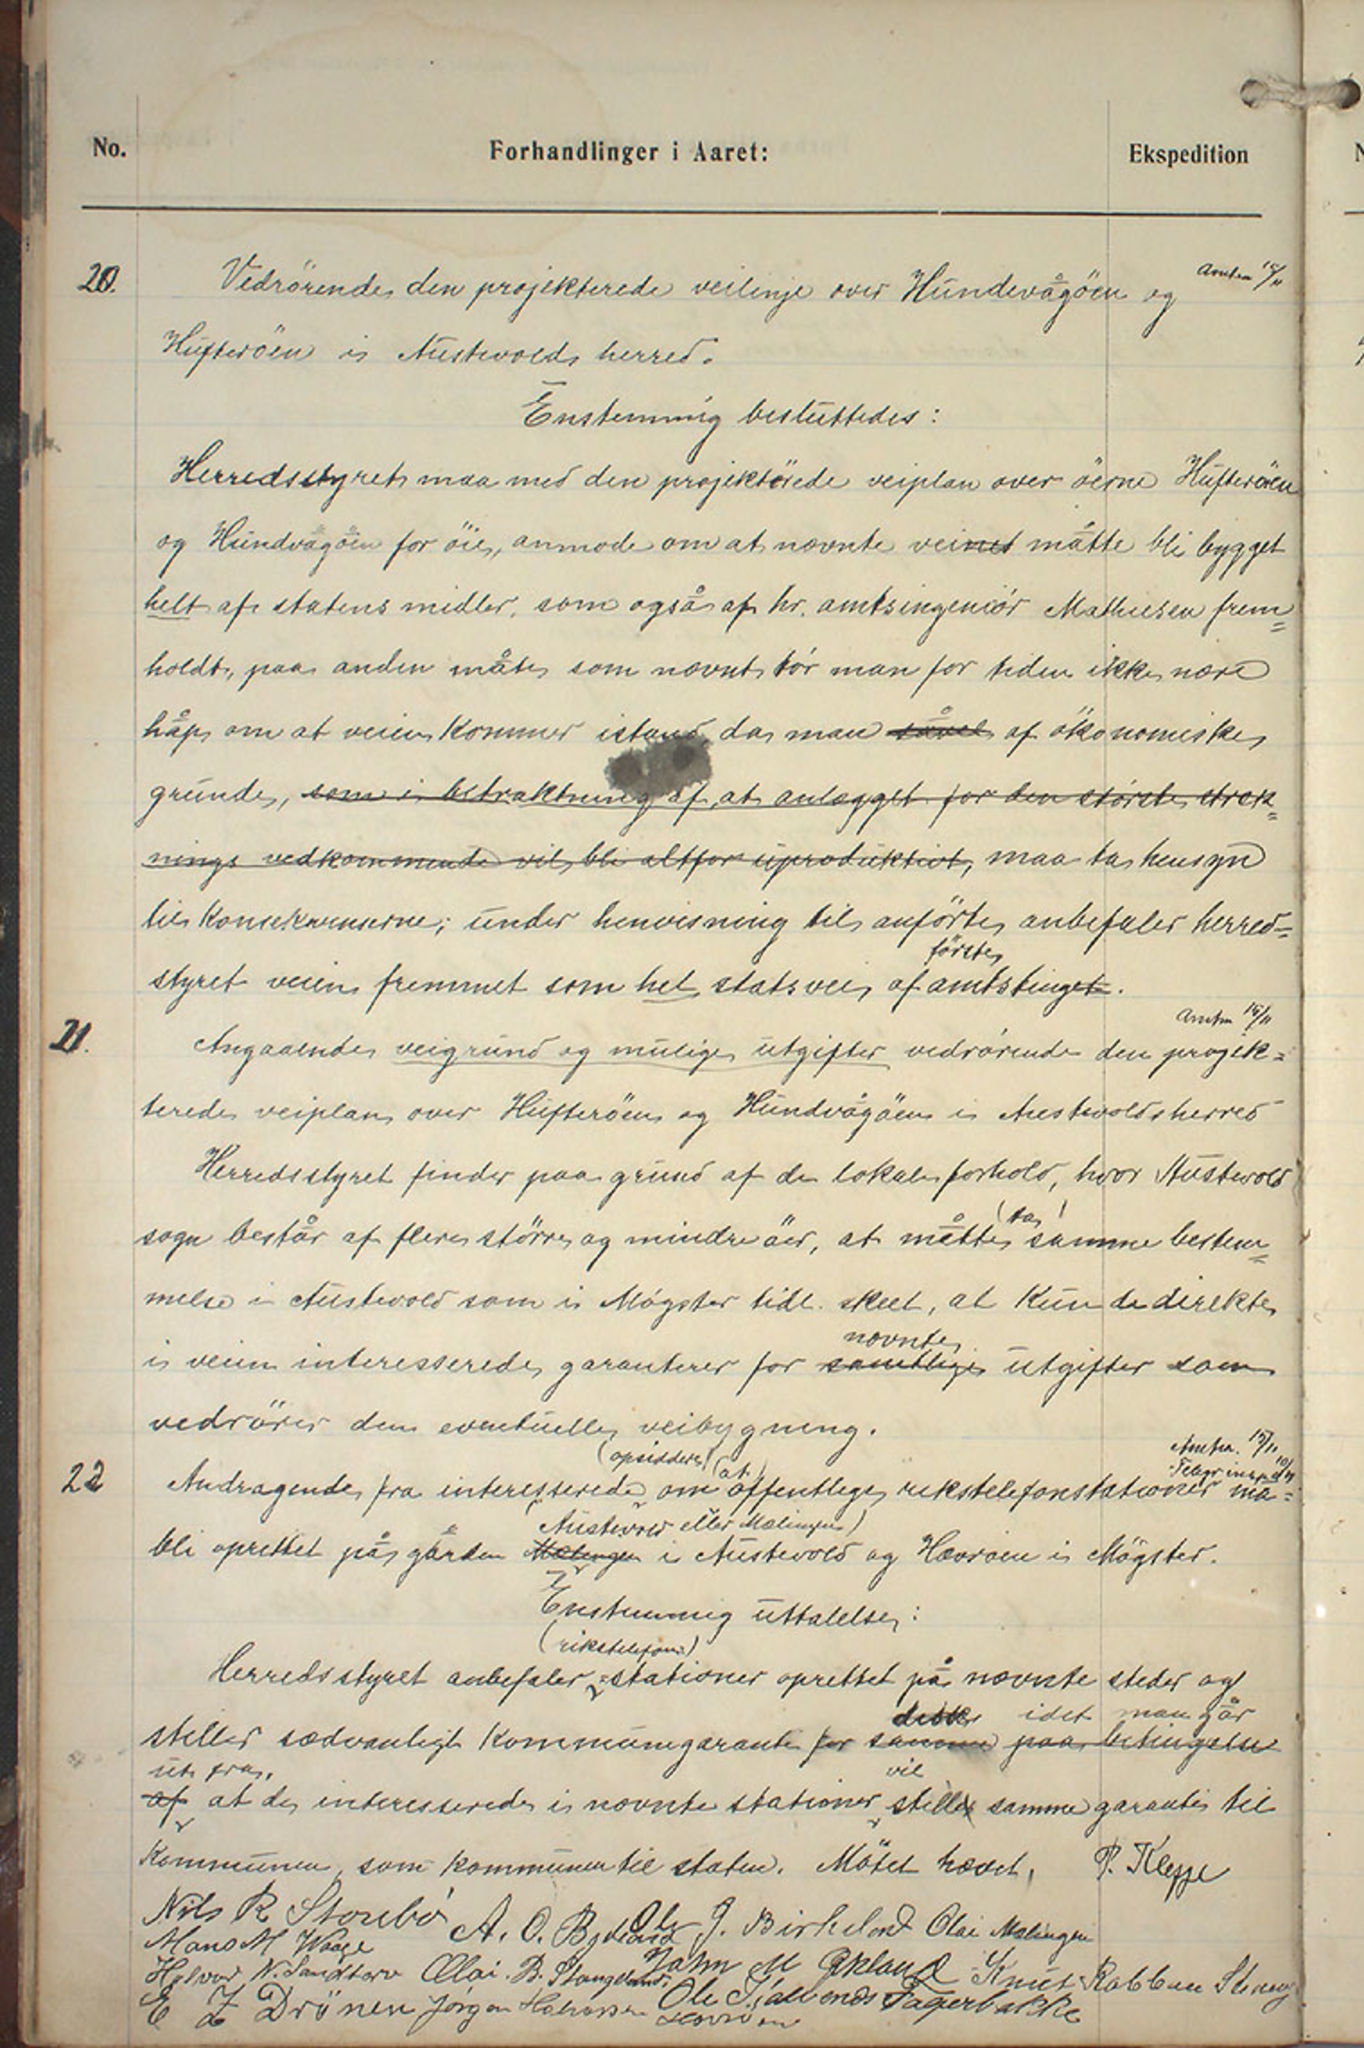 No. Forhandlinger i Aaret: Ekspedition
20. Vedrörende den projekterede veilinje over Hundevågöen og
Hufteröen i Austevolds herred.
Enstemmig besluttedes:
Herredsstyret maa med den projekterede veiplan over öerne Hufteröen
og Hundvågöen for öie, anmode om at nævnte vei måtte bli bygget
helt af statens midler, som også af hr. amtsingeniör Mathiesen frem=
holdt, paa anden måte som nævnt tör man for tiden ikke nære
håp om at veien kommer istand da man såvel af ökonomiske
grunde, som i betraktning af, at anlægget for den störste stræk=
nings vedkommende vil bli altfor uproduktivt, maa ta hensyn
til konsekvenserne; under henvisning til anförte anbefaler herred=
förste
styret veien fremmet som hel statsvei af amtsting.
Amtm 15/11
21. Angaaende veigrund og mulige utgifter vedrörende den projek=
terede veiplan over Hufteröen og Hundvågöen i Austevolds herred
Herredsstyret finder paa grund af de lokale forhold, hvor Austevold
(ta)
sogn består af flere större og mindre öer, at måtte samme bestem=
melse i Austevold som i Mögster tidl. skeet, at kun de direkte
nævnte
i veien interesserede garanterer for samtlige utgifter som
vedrörer den eventuelle veibygning.
(opsiddere) (at)
Amtm. 15/11
22 Andragende fra interesserede om offentlige rikstelefonstationer må=
(Austevold eller Mælingen)
bli oprettet på gården Mælingen i Austevold og Hævröen i Mögster.
Enstemmig uttalelse:
(rikstelefon)
Herredsstyret anbefaler =stationer oprettet på nævnte steder og
disse idet man går
stiller sædvanligt kommunegaranti for samme paa betingelse
ut fra, vil
af at de interesserede i nævnte stationer stille samme garanti til
kommunen, som kommunen til staten. Mötet hævet. P. Kleppe
Nils R Storebö A. O. Bjelland Ole J. Birkeland Olai Mælingen
Mons M Waage John M Økland Knut Rabben
Halvor N. Sandtorv Olai B. Stangeland
E Z Drönen Jörgen Halvorsen Ole Fagerbakke